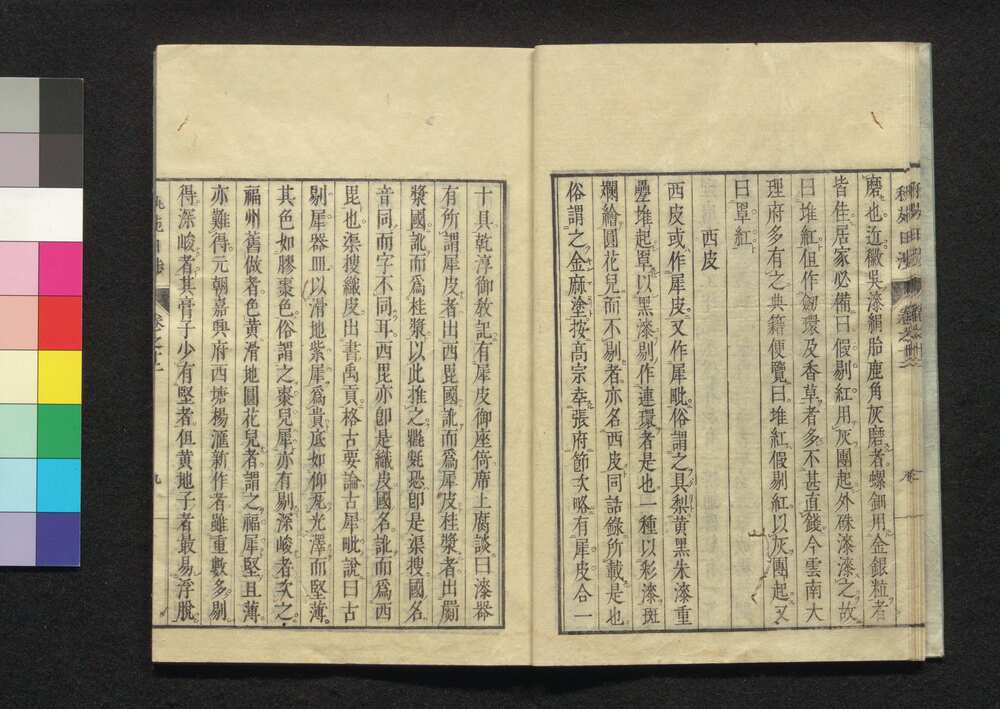 磨也近徽吳漆絹胎鹿角灰磨者螺鈿用金銀粒者
皆佳居家必備曰假剔紅用灰團起外硃漆漆之故
曰堆紅但作劔環及香草者多不甚直錢今雲南大
理府多有之典籍便覽曰堆紅假剔紅以灰團起又
曰罩紅
西皮
西皮或作犀皮又作犀毗俗謂之具梨黄黑朱漆重
疊堆起罩以黑漆剔作連環者是也一種以彩漆斑
斕繪圓花兒而不剔者亦名西皮同話錄所載是也
俗謂之金麻塗按高宗幸張府節次略有犀皮合一
十具乾淳御敎記有犀皮御座倚席上腐談曰漆器
有所謂犀皮者出西毘國訛而爲犀皮桂漿者出罽
漿國訛而爲桂漿以此推之毾㲪恐卽是渠搜國名
音同而字不同耳西毘亦卽是織皮國名訛而爲西
毘也渠搜織皮出書禹貢格古要論古犀毗說曰古
剔犀器皿以滑地紫犀爲貴底如仰瓦光澤而堅薄
其色如膠棗色俗謂之棗兒犀亦有剔深峻者次之
福州舊做者色黄滑地圓花兒者謂之福犀堅且薄
亦難得元朝嘉興府西塘楊滙新作者雖重數多剔
得深峻者其膏子少有堅者但黄地子者最易浮脫
九